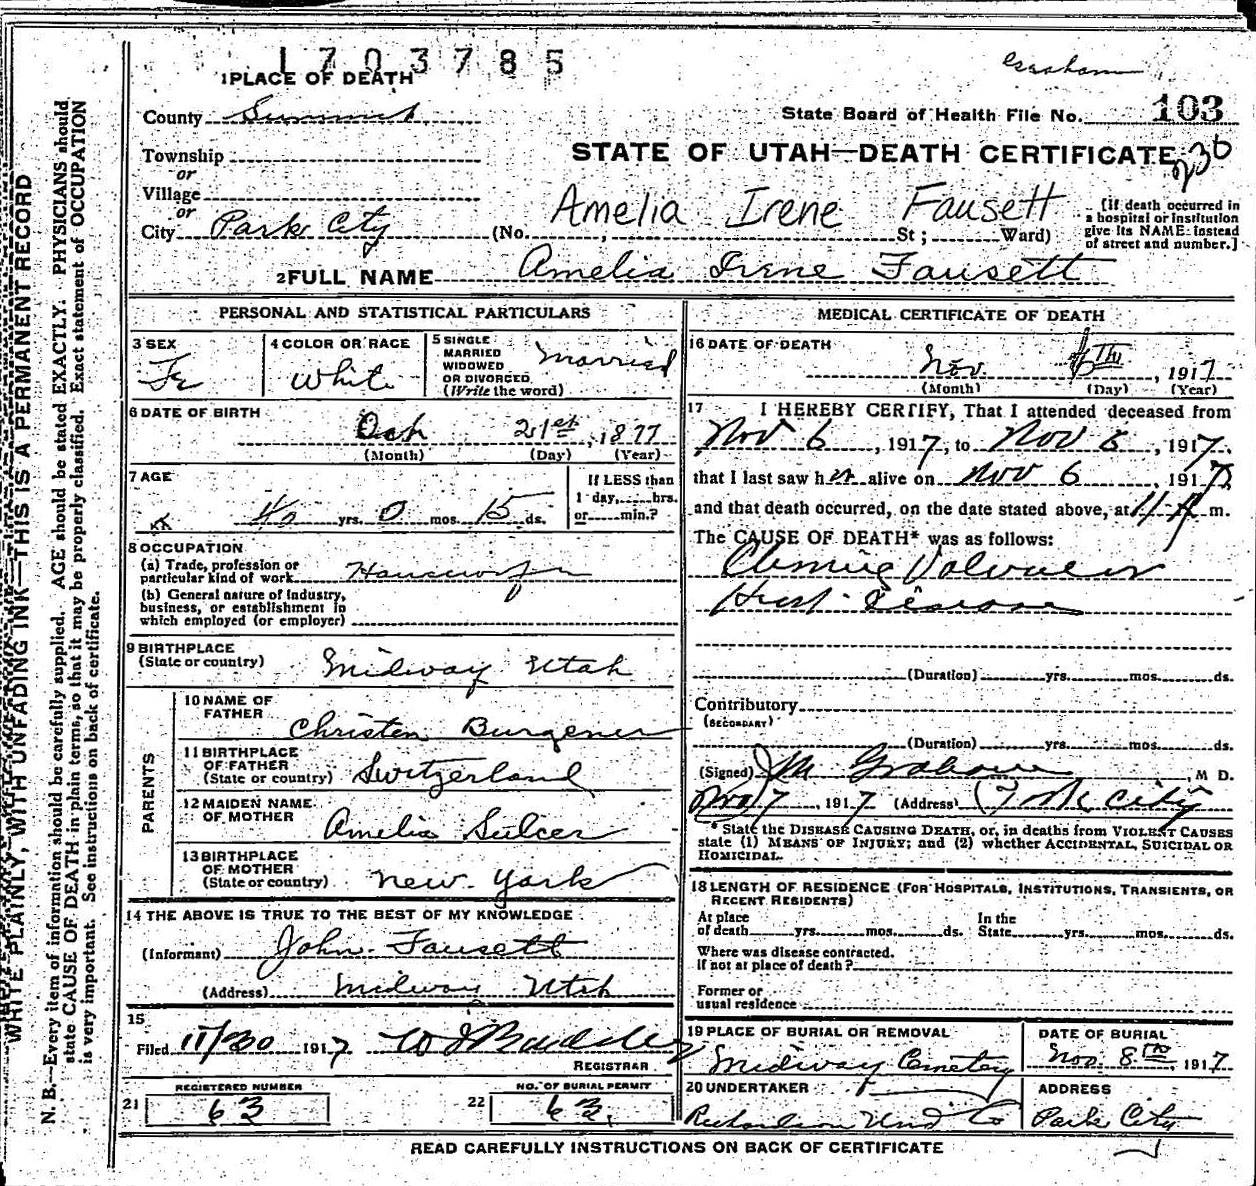 1703785
Graham
1 PLACE OF DEATH
County Summit
State Board of Health File No. 103
STATE OF UTAH—DEATH CERTIFICATE
236
Township
or
Village
or
City Park City (No. , St; Ward)
Amelia Irene Fausett
[If death occurred in
a hospital or institution
give its NAME instead
of street and number.]
2 FULL NAME Amelia Irene Fausett
PERSONAL AND STATISTICAL PARTICULARS
3 SEX
Fe
4 COLOR OR RACE
White
5 SINGLE
MARRIED
WIDOWED
OR DIVORCED
(Write the word)
Married
6 DATE OF BIRTH
Oct 21st, 1877
(Month) (Day) (Year)
7 AGE
40 yrs. 0 mos. 15 ds.
If LESS than
1 day, hrs.
or min.?
8 OCCUPATION
(a) Trade, profession or
particular kind of work Housewife
(b) General nature of industry,
business, or establishment in
which employed (or employer)
9 BIRTHPLACE
(State or country) Midway Utah
PARENTS
10 NAME OF
FATHER Christen Burgener
11 BIRTHPLACE
OF FATHER
(State or country) Switzerland
12 MAIDEN NAME
OF MOTHER Amelia Sulcer
13 BIRTHPLACE
OF MOTHER
(State or country) New York
14 THE ABOVE IS TRUE TO THE BEST OF MY KNOWLEDGE
(Informant) John Fausett
(Address) Midway Utah
15
Filed 11/30 1917
REGISTRAR
REGISTERED NUMBER
21 63
NO. OF BURIAL PERMIT
22 63
MEDICAL CERTIFICATE OF DEATH
16 DATE OF DEATH
Nov. 6TH, 1917
(Month) (Day) (Year)
17 I HEREBY CERTIFY, That I attended deceased from
Nov 6, 1917, to Nov 6, 1917,
that I last saw her alive on Nov 6, 1917,
and that death occurred, on the date stated above, at 11 A m.
The CAUSE OF DEATH* was as follows:
Chronic Valvular
Heart Disease
(Duration) yrs. mos. ds.
Contributory
(SECONDARY)
(Duration) yrs. mos. ds.
(Signed) J M Graham, M D.
Nov 7, 1917 (Address) Park City
* State the DISEASE CAUSING DEATH, or, in deaths from VIOLENT CAUSES
state (1) MEANS OF INJURY; and (2) whether ACCIDENTAL, SUICIDAL OR
HOMICIDAL.
18 LENGTH OF RESIDENCE (FOR HOSPITALS, INSTITUTIONS, TRANSIENTS, OR
RECENT RESIDENTS)
At place
of death yrs. mos. ds.
In the
State yrs. mos. ds.
Where was disease contracted,
if not at place of death?
Former or
usual residence
19 PLACE OF BURIAL OR REMOVAL
Midway Cemetery
DATE OF BURIAL
Nov. 8TH 1917
20 UNDERTAKER
Richardson Und Co
ADDRESS
Park City
READ CAREFULLY INSTRUCTIONS ON BACK OF CERTIFICATE
WRITE PLAINLY, WITH UNFADING INK—THIS IS A PERMANENT RECORD
N. B.—Every item of information should be carefully supplied. AGE should be stated EXACTLY. PHYSICIANS should
state CAUSE OF DEATH in plain terms, so that it may be properly classified. Exact statement of OCCUPATION
is very important. See instructions on back of certificate.